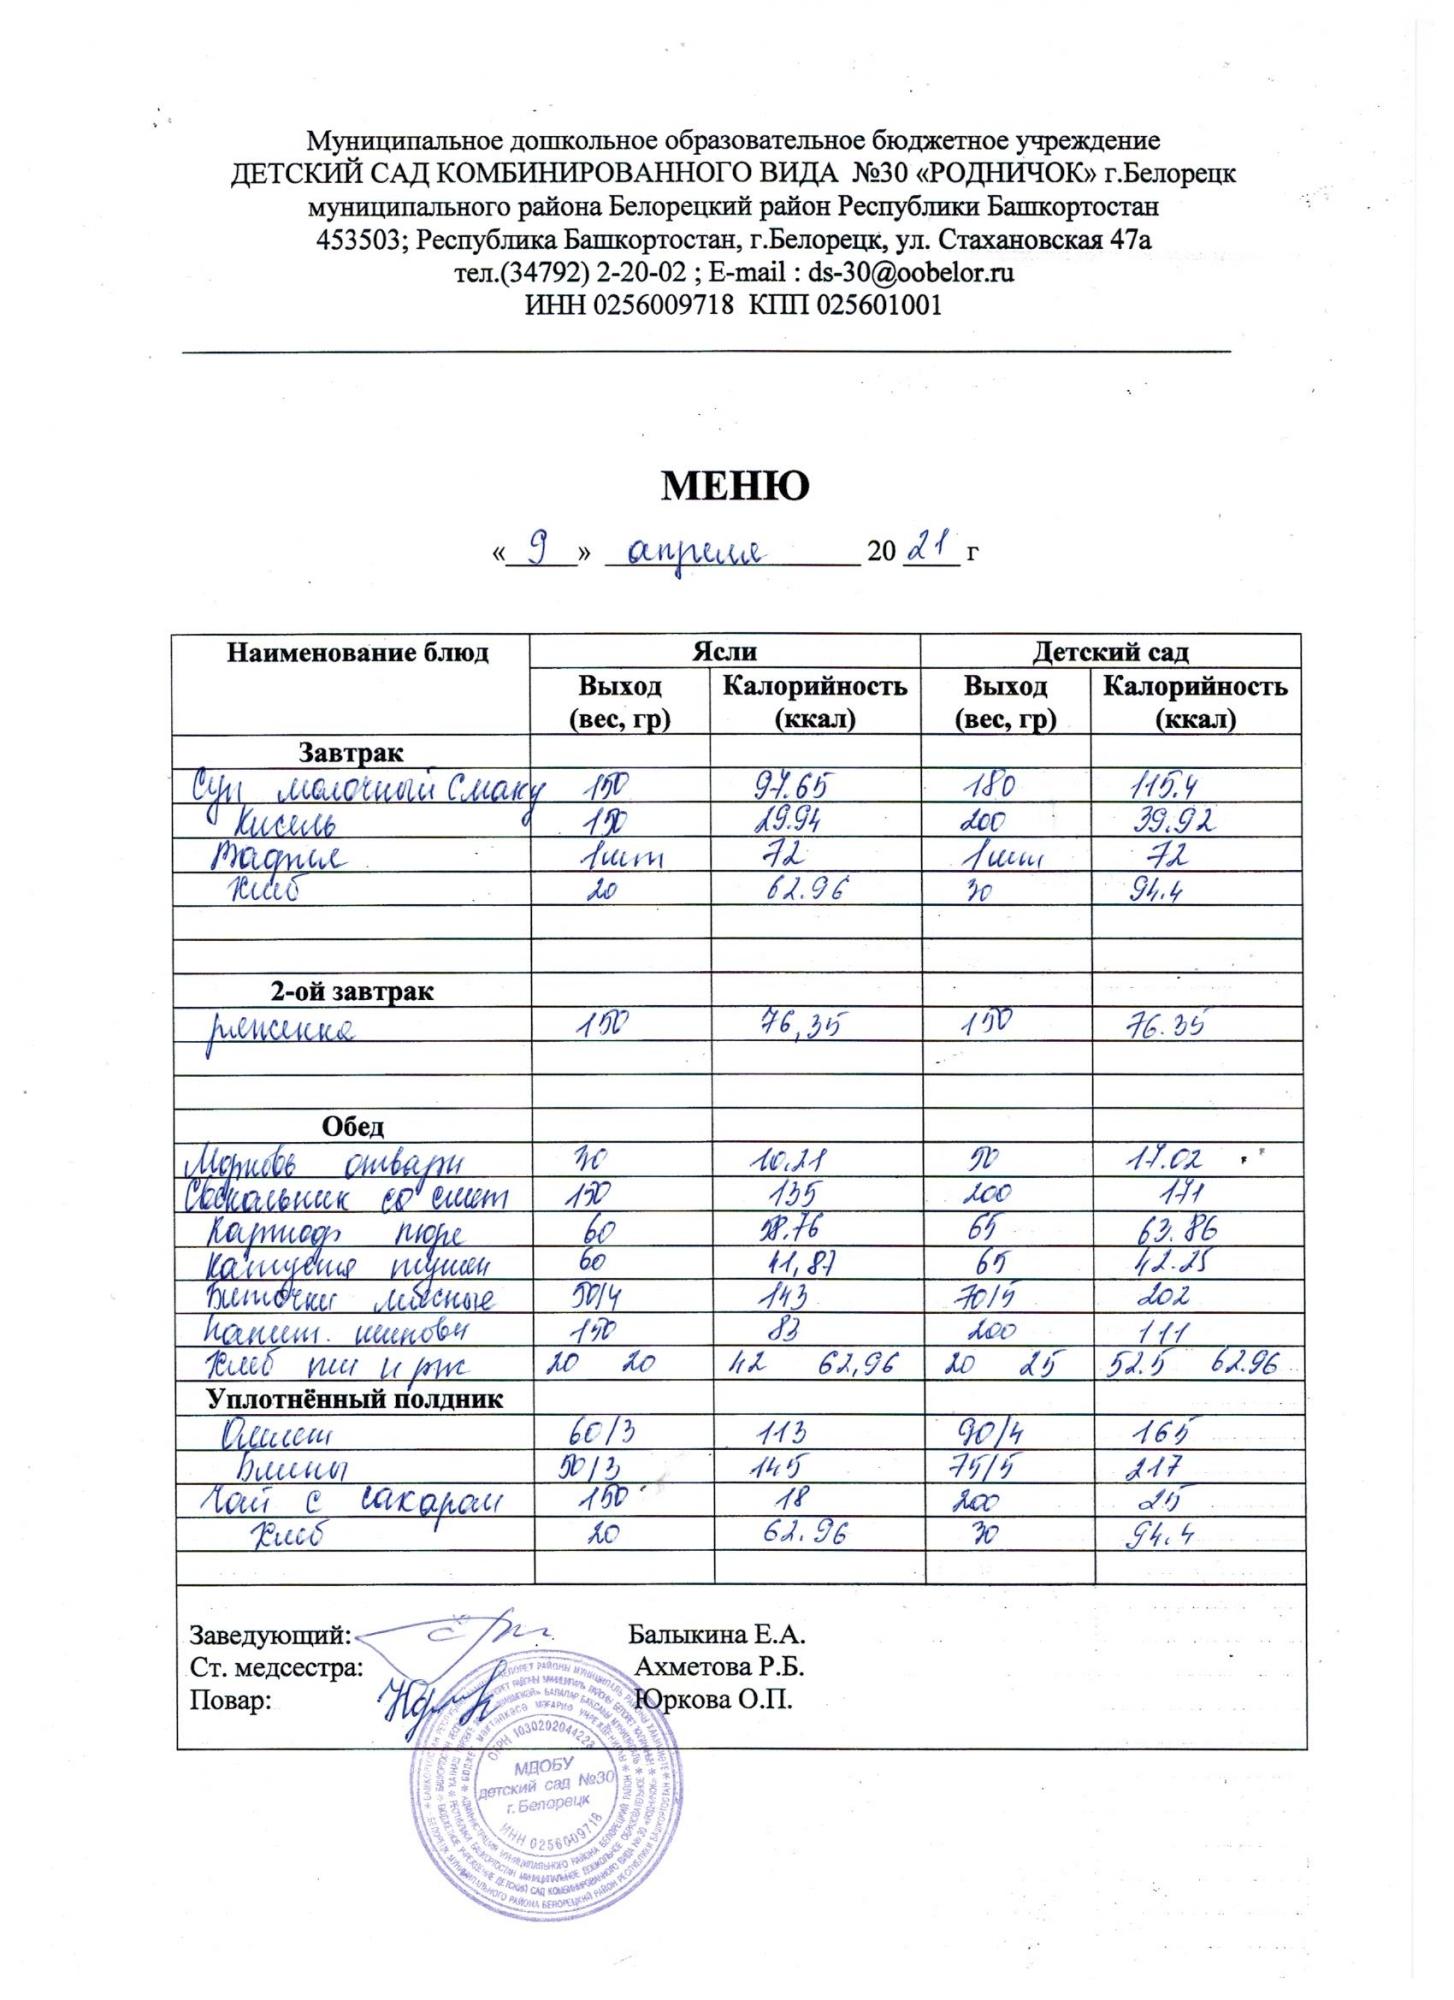 Муниципальное дошкольное образовательное бюджетное учреждение
ДЕТСКИЙ САД КОМБИНИРОВАННОГО ВИДА №30 «РОДНИЧОК» г.Белорецк
муниципального района Белорецкий район Республики Башкортостан
453503; Республика Башкортостан, г.Белорецк, ул. Стахановская 47а
тел.(34792) 2-20-02 ; E-mail : ds-30@oobelor.ru
ИНН 0256009718 КПП 025601001
МЕНЮ
« 9 » апреля 20 21 г
Наименование блюд Ясли Детский сад
Выход (вес, гр) Калорийность (ккал) Выход (вес, гр) Калорийность (ккал)
Завтрак
Суп молочный 150 97.65 180 115.4
Кисель 150 29.94 200 39.92
Вафля 1шт 72 1шт 72
Хлеб 20 62.96 30 94.4
2-ой завтрак
ряженка 150 76,35 150 76.35
Обед
Морковь отварн 30 10.21 50 17.02
Свекольник со смет 150 135 200 171
Картоф пюре 60 58.76 65 63.86
Капуста тушен 60 41,87 65 42.25
Биточки мясные 50/4 143 70/5 202
Напит. шиповн 150 83 200 111
Хлеб пш и рж 20 20 42 62,96 20 25 52.5 62.96
Уплотнённый полдник
Омлет 60/3 113 90/4 165
Блины 50/3 145 75/5 217
Чай с сахаром 150 18 200 25
Хлеб 20 62.96 30 94.4
Заведующий: Балыкина Е.А.
Ст. медсестра: Ахметова Р.Б.
Повар: Юркова О.П.
ОГРН 1030202044223
МДОБУ
детский сад №30
г. Белорецк
ИНН 0256009718